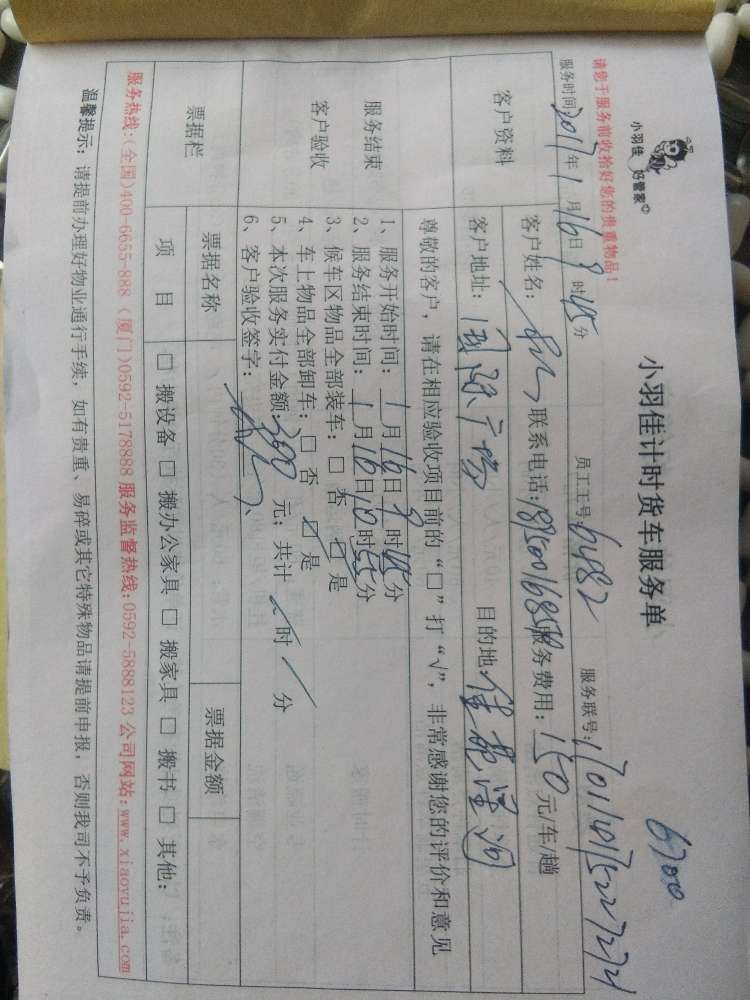 小羽佳 好管家
小羽佳计时货车服务单
6700
请您于服务前收拾好您的贵重物品!
服务时间 2017年1月16日9时45分 员工工号: 6482 服务联号:
客户资料 客户姓名: 联系电话: 服务费用: 150元/车/趟
客户地址: 国际广场 目的地:
尊敬的客户，请在相应验收项目前的“□”打“√”，非常感谢您的评价和意见
服务结束
客户验收
1、服务开始时间: 1月16日9时45分
2、服务结束时间: 1月16日10时55分
3、候车区物品全部装车: □ 否 ☑ 是
4、车上物品全部卸车: □ 否 ☑ 是
5、本次服务实付金额: 200 元; 共计 2 时 / 分
6、客户验收签字:
票据栏 票据名称 票据金额
项 目 □ 搬设备 □ 搬办公家具 □ 搬家具 □ 搬书 □ 其他:
服务热线:(全国)400-6655-888 (厦门)0592-5178888 服务监督热线:0592-5888123 公司网站:www.xiaoyujia.com
温馨提示: 请提前办理好物业通行手续, 如有贵重、易碎或其它特殊物品请提前申报, 否则我司不予负责。